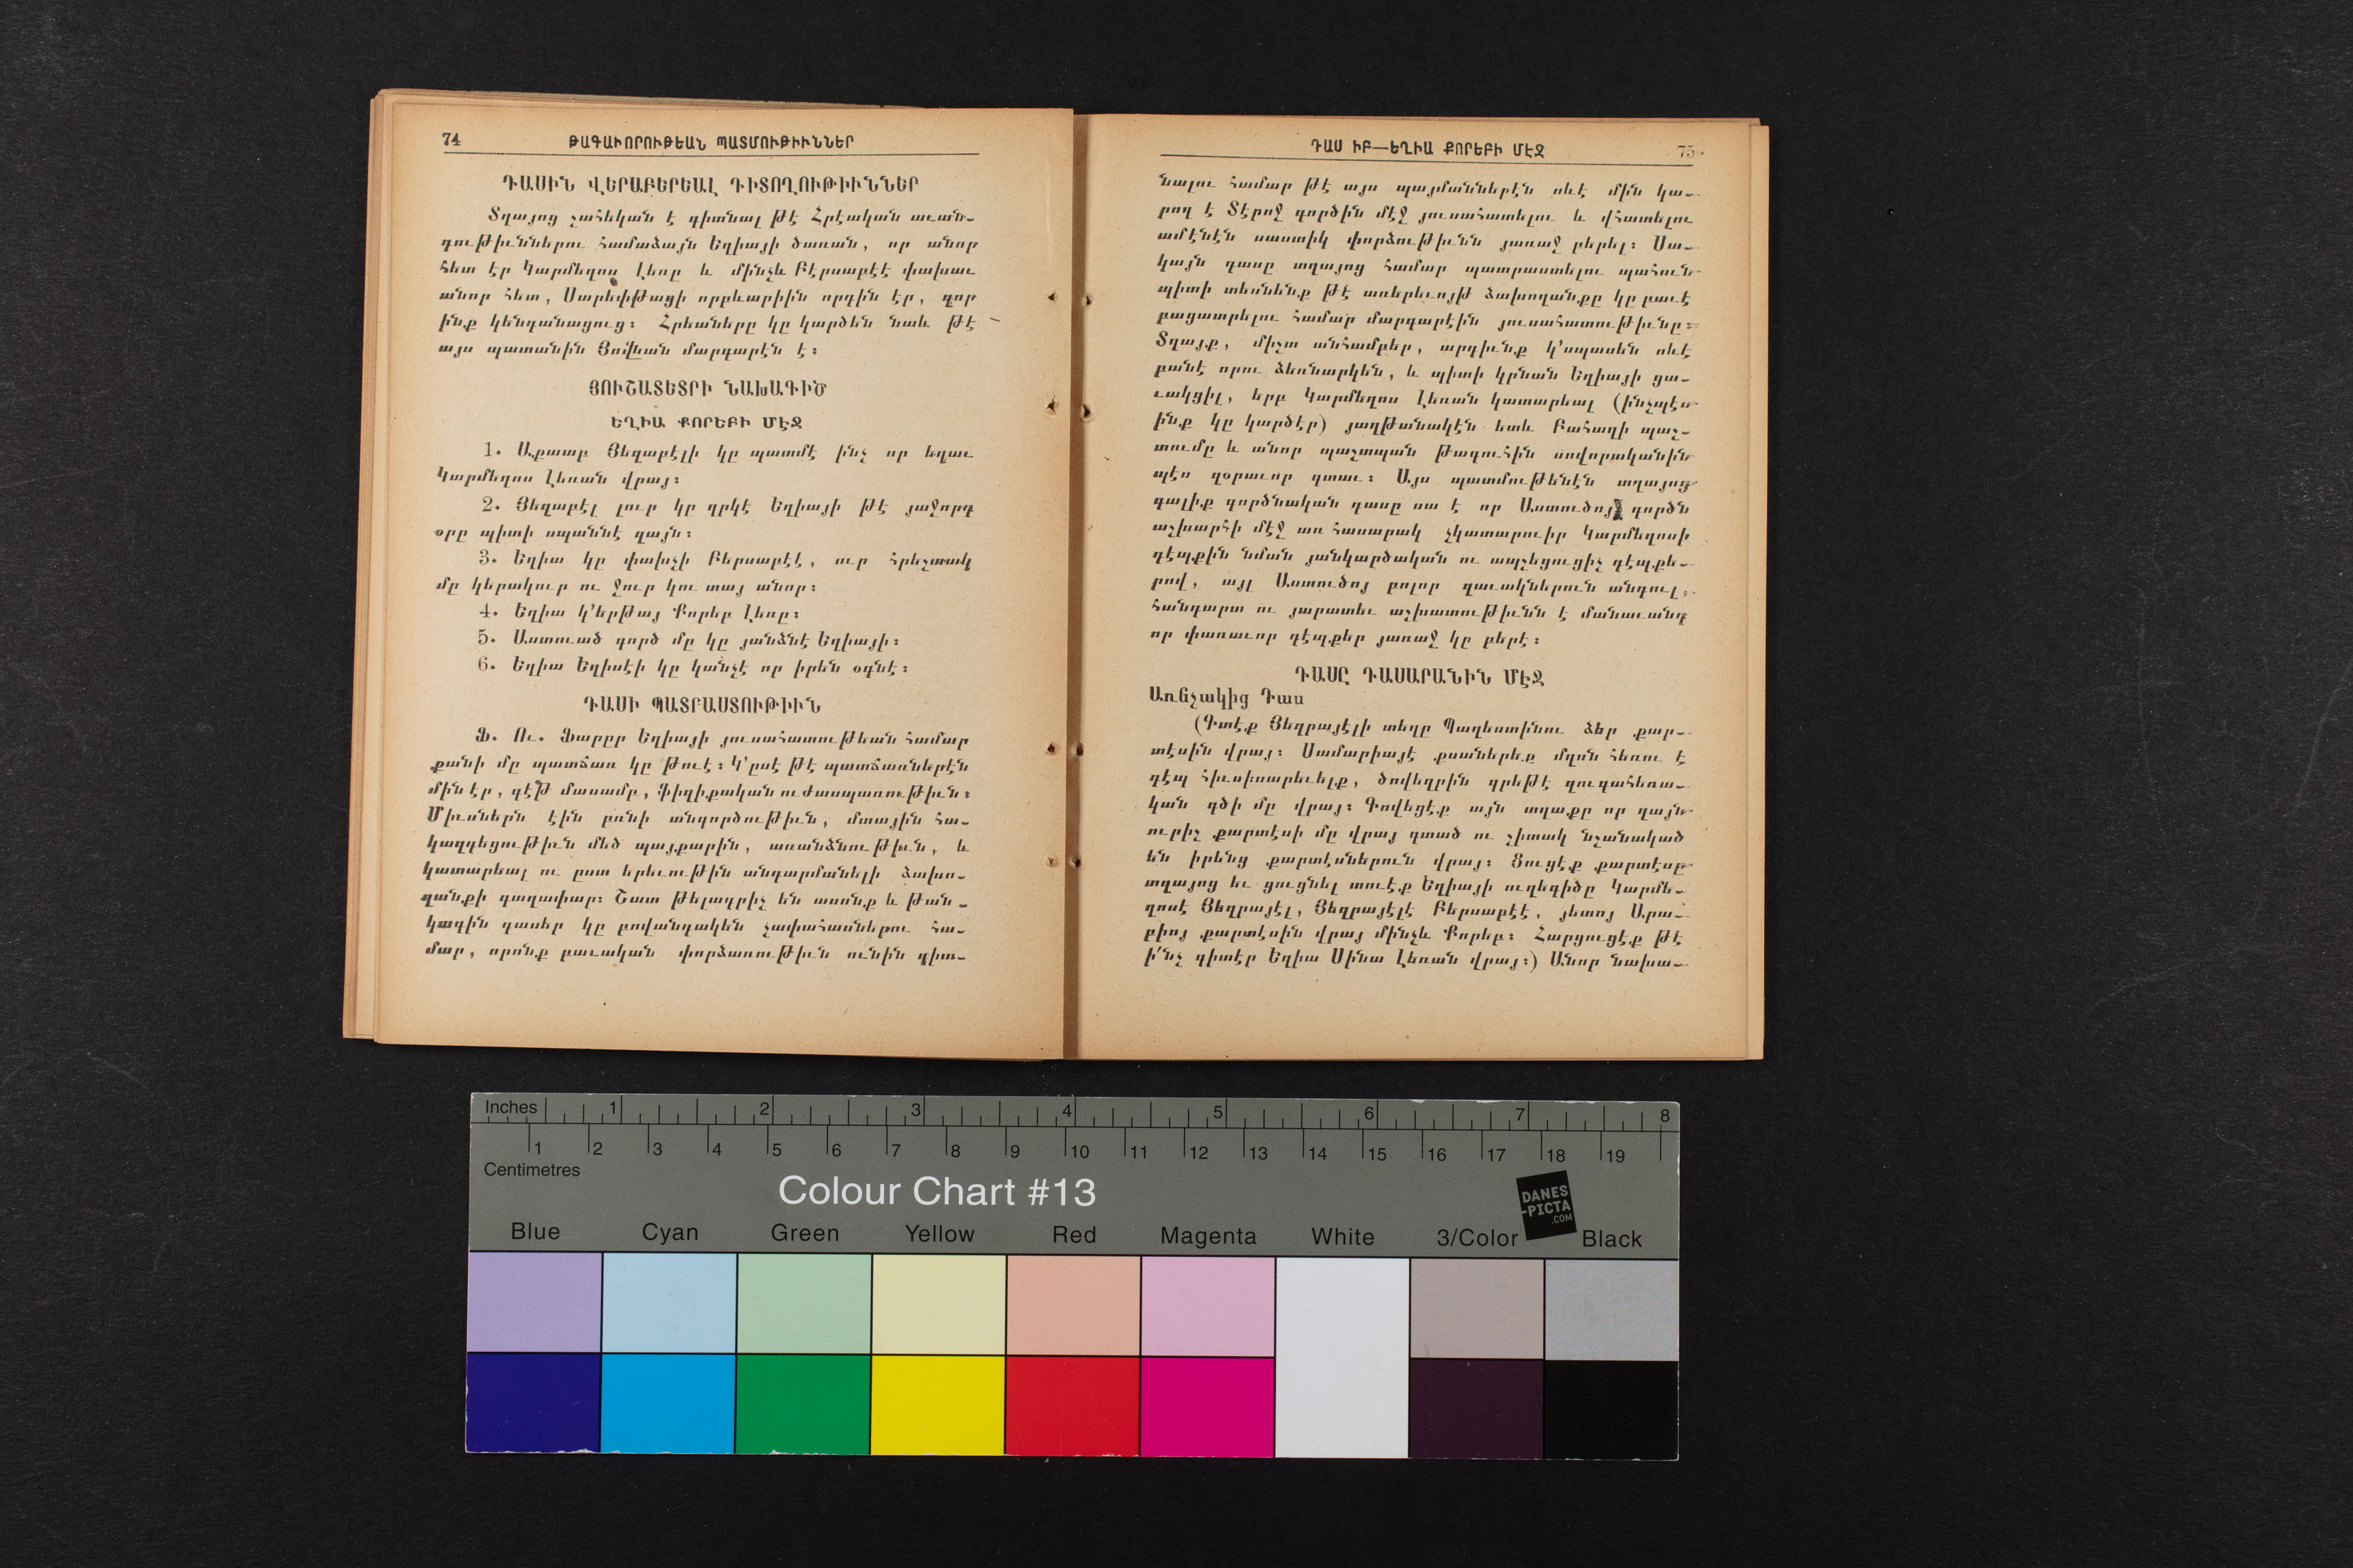 74 ԹԱԳԱՒՈՐՈՒԹԵԱՆ ՊԱՏՄՈՒԹԻՒՆՆԵՐ
ԴԱՍԻՆ ՎԵՐԱԲԵՐԵԱԼ ԴԻՏՈՂՈՒԹԻՒՆՆԵՐ
Տղայոց շահեկան է գիտնալ թէ Հրէական աւան-
դութիւններու համաձայն Եղիայի ծառան, որ անոր
հետ էր Կարմեղոս լեռը և մինչև Բէրսաբէէ փախաւ
անոր հետ, Սարեփթացի որբևարիին որդին էր, զոր
ինք կենդանացուց։ Հրեաները կը կարծեն նաև թէ
այս պատանին Յովնան մարգարէն է։
ՅՈՒՇԱՏԵՏՐԻ ՆԱԽԱԳԻԾ
ԵՂԻԱ ՔՈՐԵԲԻ ՄԷՋ
1. Աքաաբ Յեզաբէլի կը պատմէ ինչ որ եղաւ
Կարմեղոս լեռան վրայ։
2. Յեզաբէլ լուր կը ղրկէ Եղիայի թէ յաջորդ
օրը պիտի սպաննէ զայն։
3. Եղիա կը փախչի Բերսաբէէ, ուր հրեշտակ
մը կերակուր ու ջուր կու տայ անոր։
4. Եղիա կ՚երթայ Քորեբ լեռը։
5. Աստուած գործ մը կը յանձնէ Եղիայի։
6. Եղիա Եղիսէի կը կանչէ որ իրեն օգնէ։
ԴԱՍԻ ՊԱՏՐԱՍՏՈՒԹԻՒՆ
Ֆ. Ու. Ֆարըր Եղիայի յուսահատութեան համար
քանի մը պատճառ կը թուէ։ Կ՚ըսէ թէ պատճառներէն
մին էր, գէթ մասամբ, ֆիզիքական ուժասպառութիւն։
Միւսներն էին բռնի անգործութիւն, մտային հա-
կազդեցութիւն մեծ պայքարին, առանձնութիւն, և
կատարեալ ու ըստ երեւութին անդարմանելի ձախո-
ղանքի գաղափար։ Շատ թելադրիչ են ասոնք և թան-
կագին դասեր կը բովանդակեն չափահասներու հա-
մար, որոնք բաւական փորձառութիւն ունին գիտ-
ԴԱՍ ԻԲ—ԵՂԻԱ ՔՈՐԵԲԻ ՄԷՋ 75
նալու համար թէ այս պայմաններէն ոևէ մին կա-
րող է Տէրոջ գործին մէջ յուսահատելու և վհատելու
ամէնէն սաստիկ փորձութիւնն յառաջ բերել։ Սա-
կայն դասը տղայոց համար պատրաստելու պահուն
պիտի տեսնենք թէ առերեւոյթ ձախողանքը կը բաւէ
բացատրելու համար մարգարէին յուսահատութիւնը։
Տղայք, միշտ անհամբեր, արդիւնք կ՚սպասեն ոևէ
բանէ որու ձեռնարկեն, և պիտի կրնան Եղիայի ցա-
ւակցիլ, երբ Կարմեղոս լեռան կատարեալ (ինչպէս
ինք կը կարծէր) յաղթանակէն ետև Բահաղի պաշ-
տումը և անոր պաշտպան թագուհին սովորականին
պէս զօրաւոր գտաւ։ Այս պատմութենէն տղայոց
գալիք գործնական դասը սա է որ Աստուծոյ գործն
աշխարհի մէջ առ հասարակ չկատարուիր Կարմեղոսի
դէպքին նման յանկարծական ու ապշեցուցիչ դէպքե-
րով, այլ Աստուծոյ բոլոր զաւակներուն անդուլ,
հանդարտ ու յարատեւ աշխատութիւնն է մանաւանդ
որ փառաւոր դէպքեր յառաջ կը բերէ։
ԴԱՍԸ ԴԱՍԱՐԱՆԻՆ ՄԷՋ
Առնչակից Դաս
(Գտէք Յեզրայէլի տեղը Պաղեստինու ձեր քար-
տէսին վրայ։ Սամարիայէ քսաներեք մղոն հեռու է
դէպ հիւսիսարեւելք, ծովեզրին գրեթէ զուգահեռա-
կան գծի մը վրայ։ Գովեցէք այն տղաքը որ զայն
ուրիշ քարտէսի մը վրայ գտած ու շիտակ նշանակած
են իրենց քարտէսներուն վրայ։ Ցուցէք քարտէսը
տղայոց եւ ցուցնել տուէք Եղիայի ուղեգիծը Կարմե-
ղոսէ Յեզրայէլ, Յեզրայէլէ Բերսաբէէ, յետոյ Արա-
բիոյ քարտէսին վրայ մինչև Քորեբ։ Հարցուցէք թէ
ի՛նչ գիտէր Եղիա Սինա լեռան վրայ։) Անոր նախա-
Inches 1 2 3 4 5 6 7 8
1 2 3 4 5 6 7 8 9 10 11 12 13 14 15 16 17 18 19
Centimetres
Colour Chart #13
DANES
-PICTA
.COM
Blue Cyan Green Yellow Red Magenta White 3/Color Black